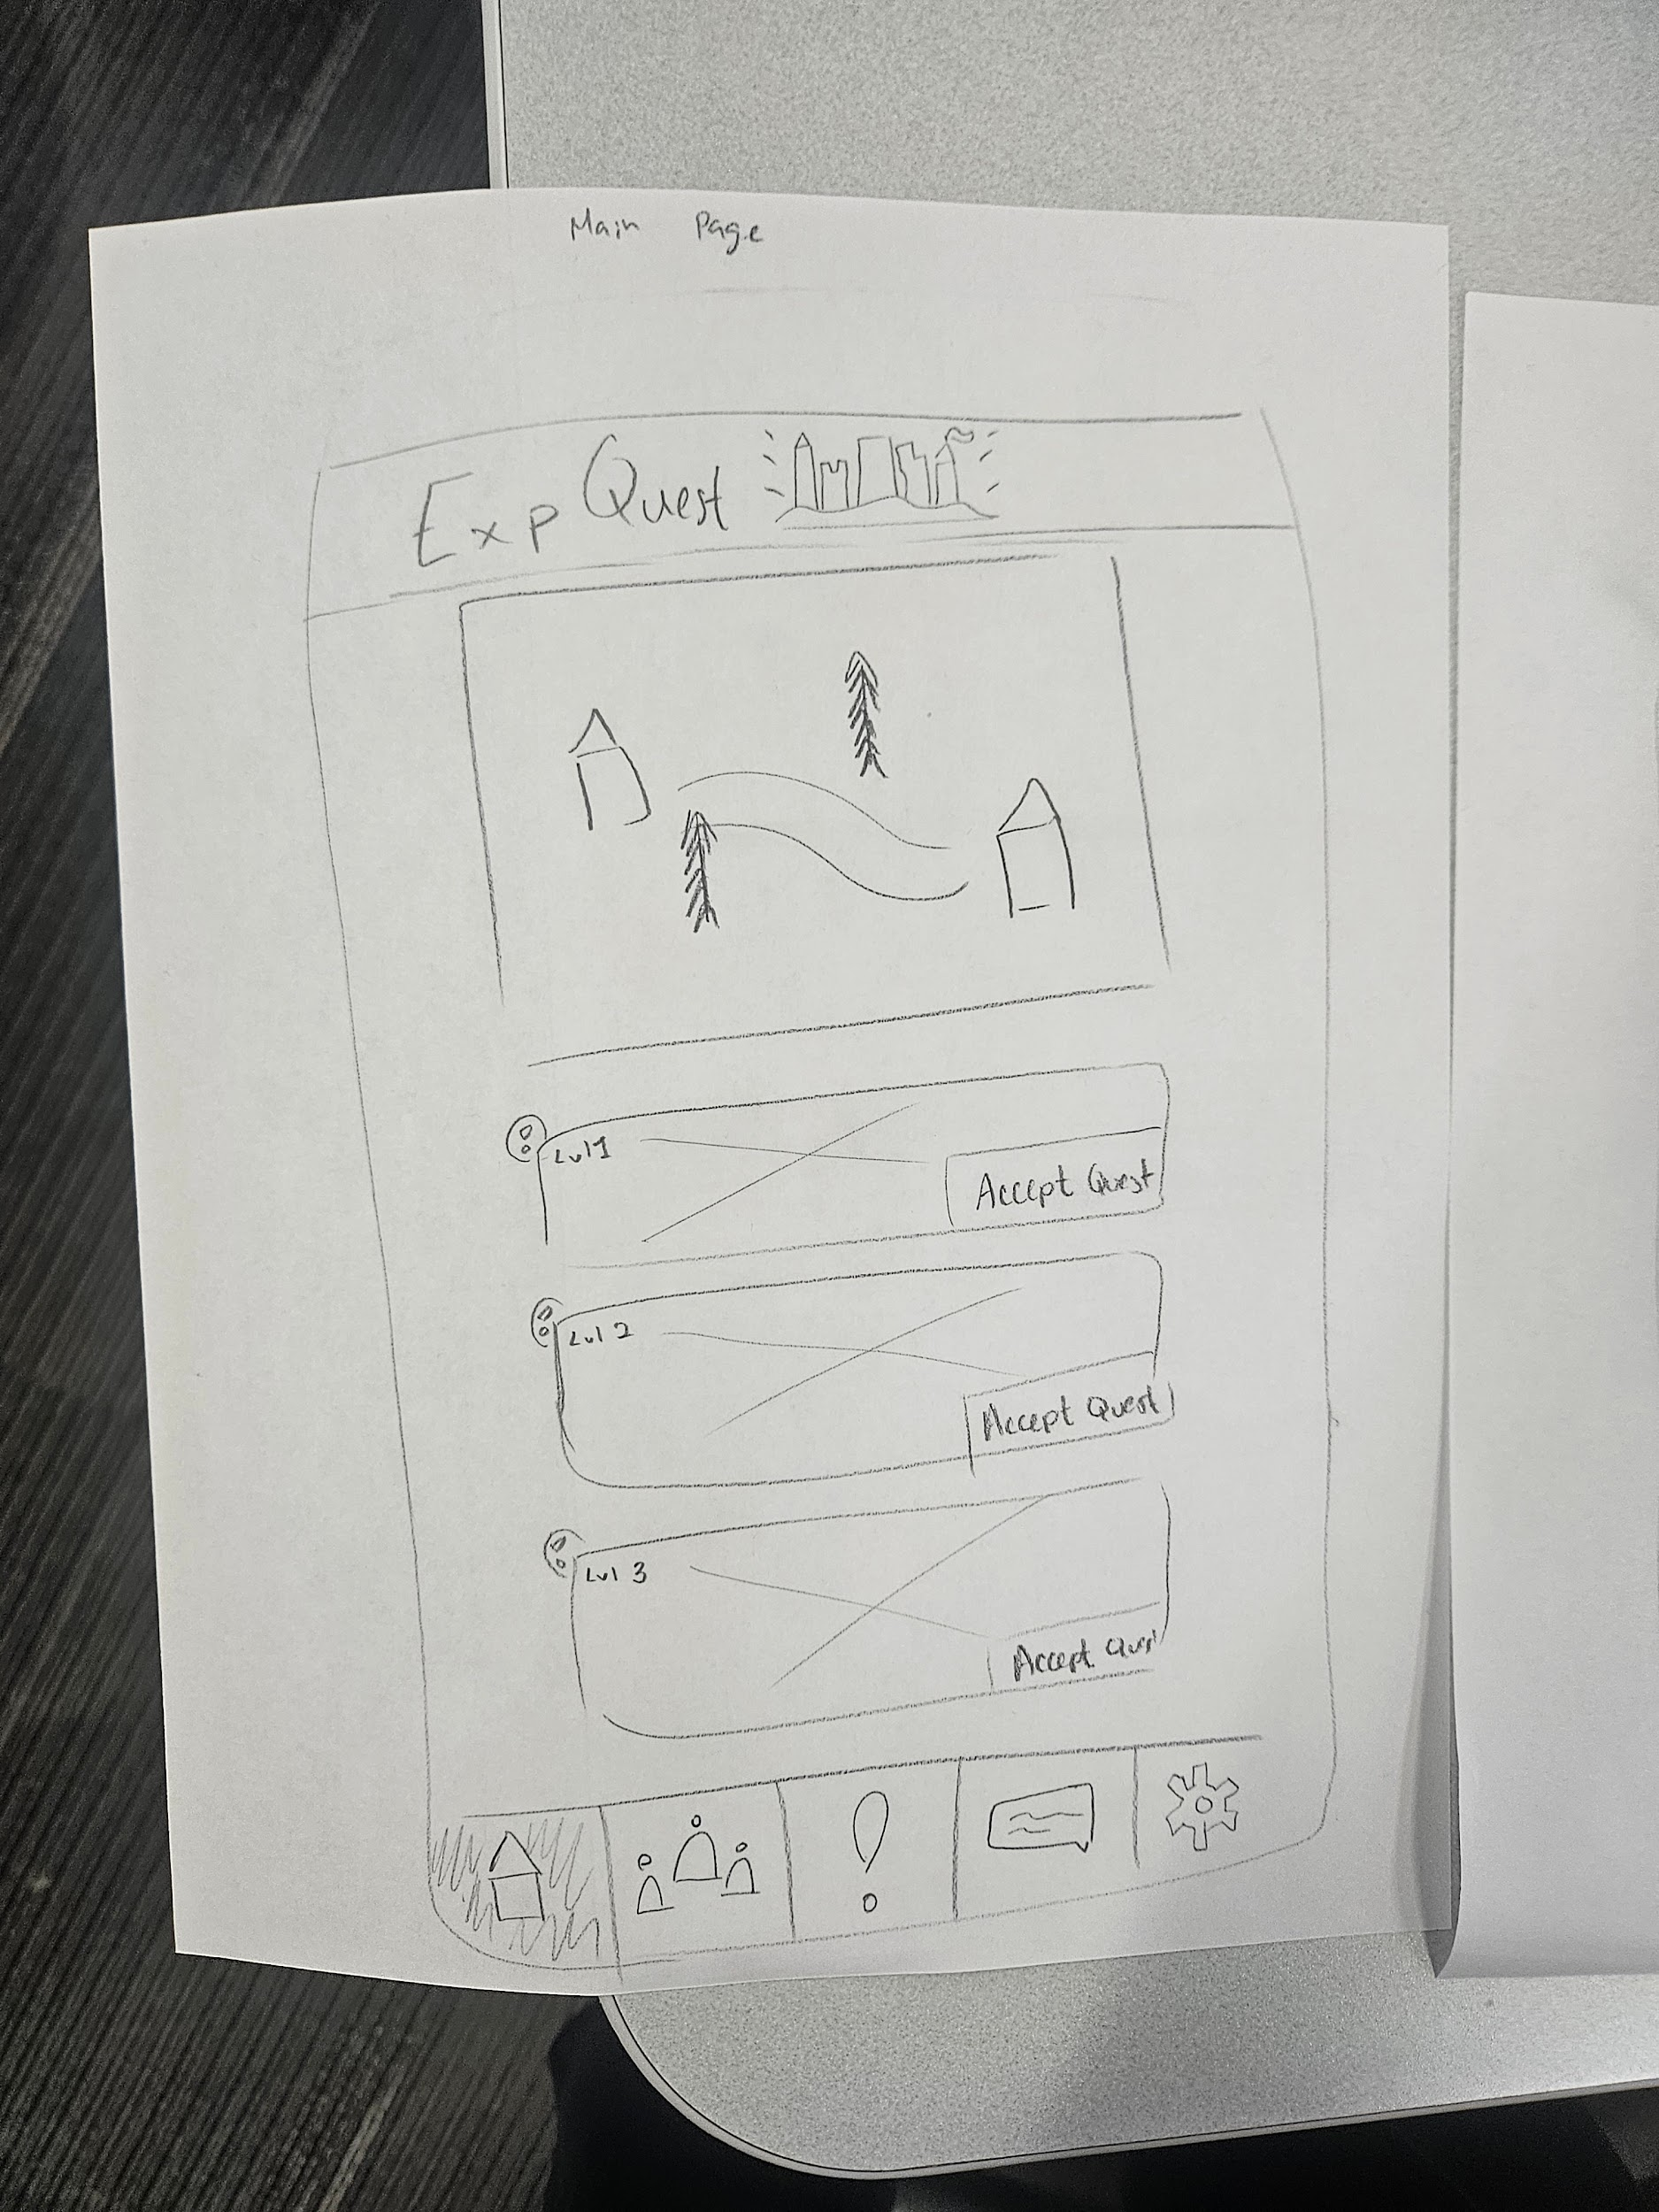 Main Page
Exp Quest
Lvl 1
Accept Quest
Lvl 2
Accept Quest
Lvl 3
Accept Ques